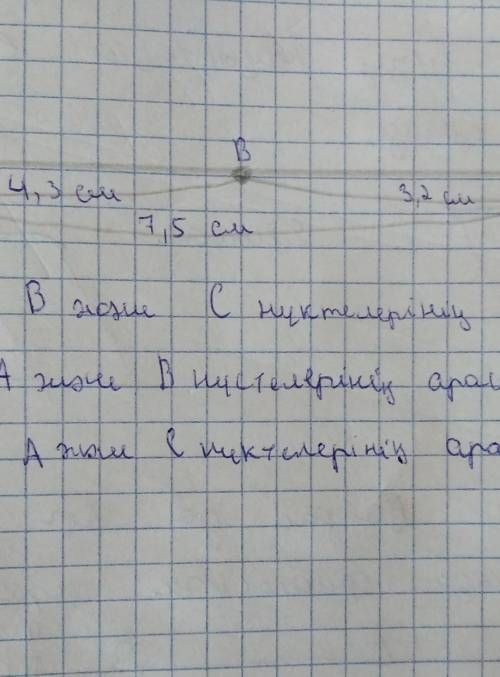 B
4,3 см 3,2 см
7,5 см
В және С нүктелерінің
А және В нүстелерінің арас
А және С нүктелерінің ара